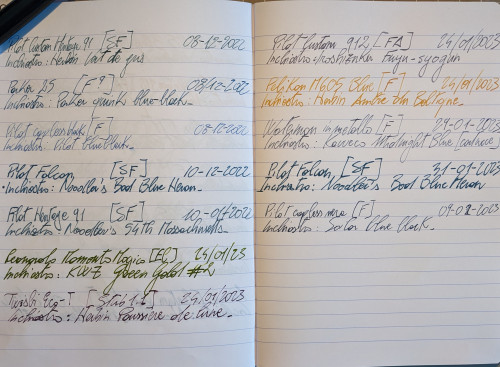 Pilot Custom Heritage 91 [SF] 08-12-2022
Inchiostro: Herbin Vert de gris
Parker 45 [F?] 08/12-2022
Inchiostro: Parker quink blue-black.
Pilot capless black [F] 08-12-2022
Inchiostro: Pilot blue black.
Pilot Falcon [SF] 10-12-2022
Inchiostro: Noodler's Bad Blue Heron.
Pilot Heritage 91 [SF]
Inchiostro: Noodler's 54th Massachusetts.
Leonardo Momento Magico [EF] 24/01/23
Inchiostro: KWZ Green Gold #2
Twsbi Eco-T [Stub 1.1] 24/01/2023
Inchiostro: Herbin Poussière de lune.
Pilot Custom 912 [FA] 24/01/2023
Inchiostro: Iroshizuku Fuyu-syogun
Pelikan M605 Blue [F] 24/01/2023
Inchiostro: Herbin Ambre de Baltique.
in metallo [F] 29-01-2023
Inchiostro: Kaweco Midnight Blue
Pilot Falcon, [SF] 31-01-2023
Inchiostro: Noodler's Bad Blue Heron
Pilot capless nera [F] 09-02-2023
Inchiostro: Sailor blue black.